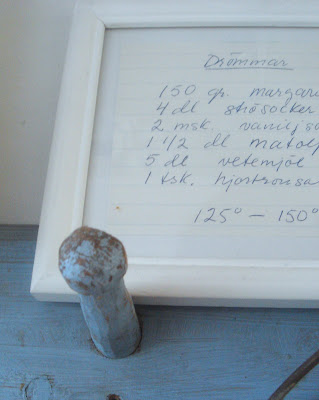 Drömmar
150 gr. margar
4 dl strösocker
2 msk. vaniljso
1 1/2 dl matolj
5 dl vetemjöl
1 tsk. hjortronsa
125° – 150°